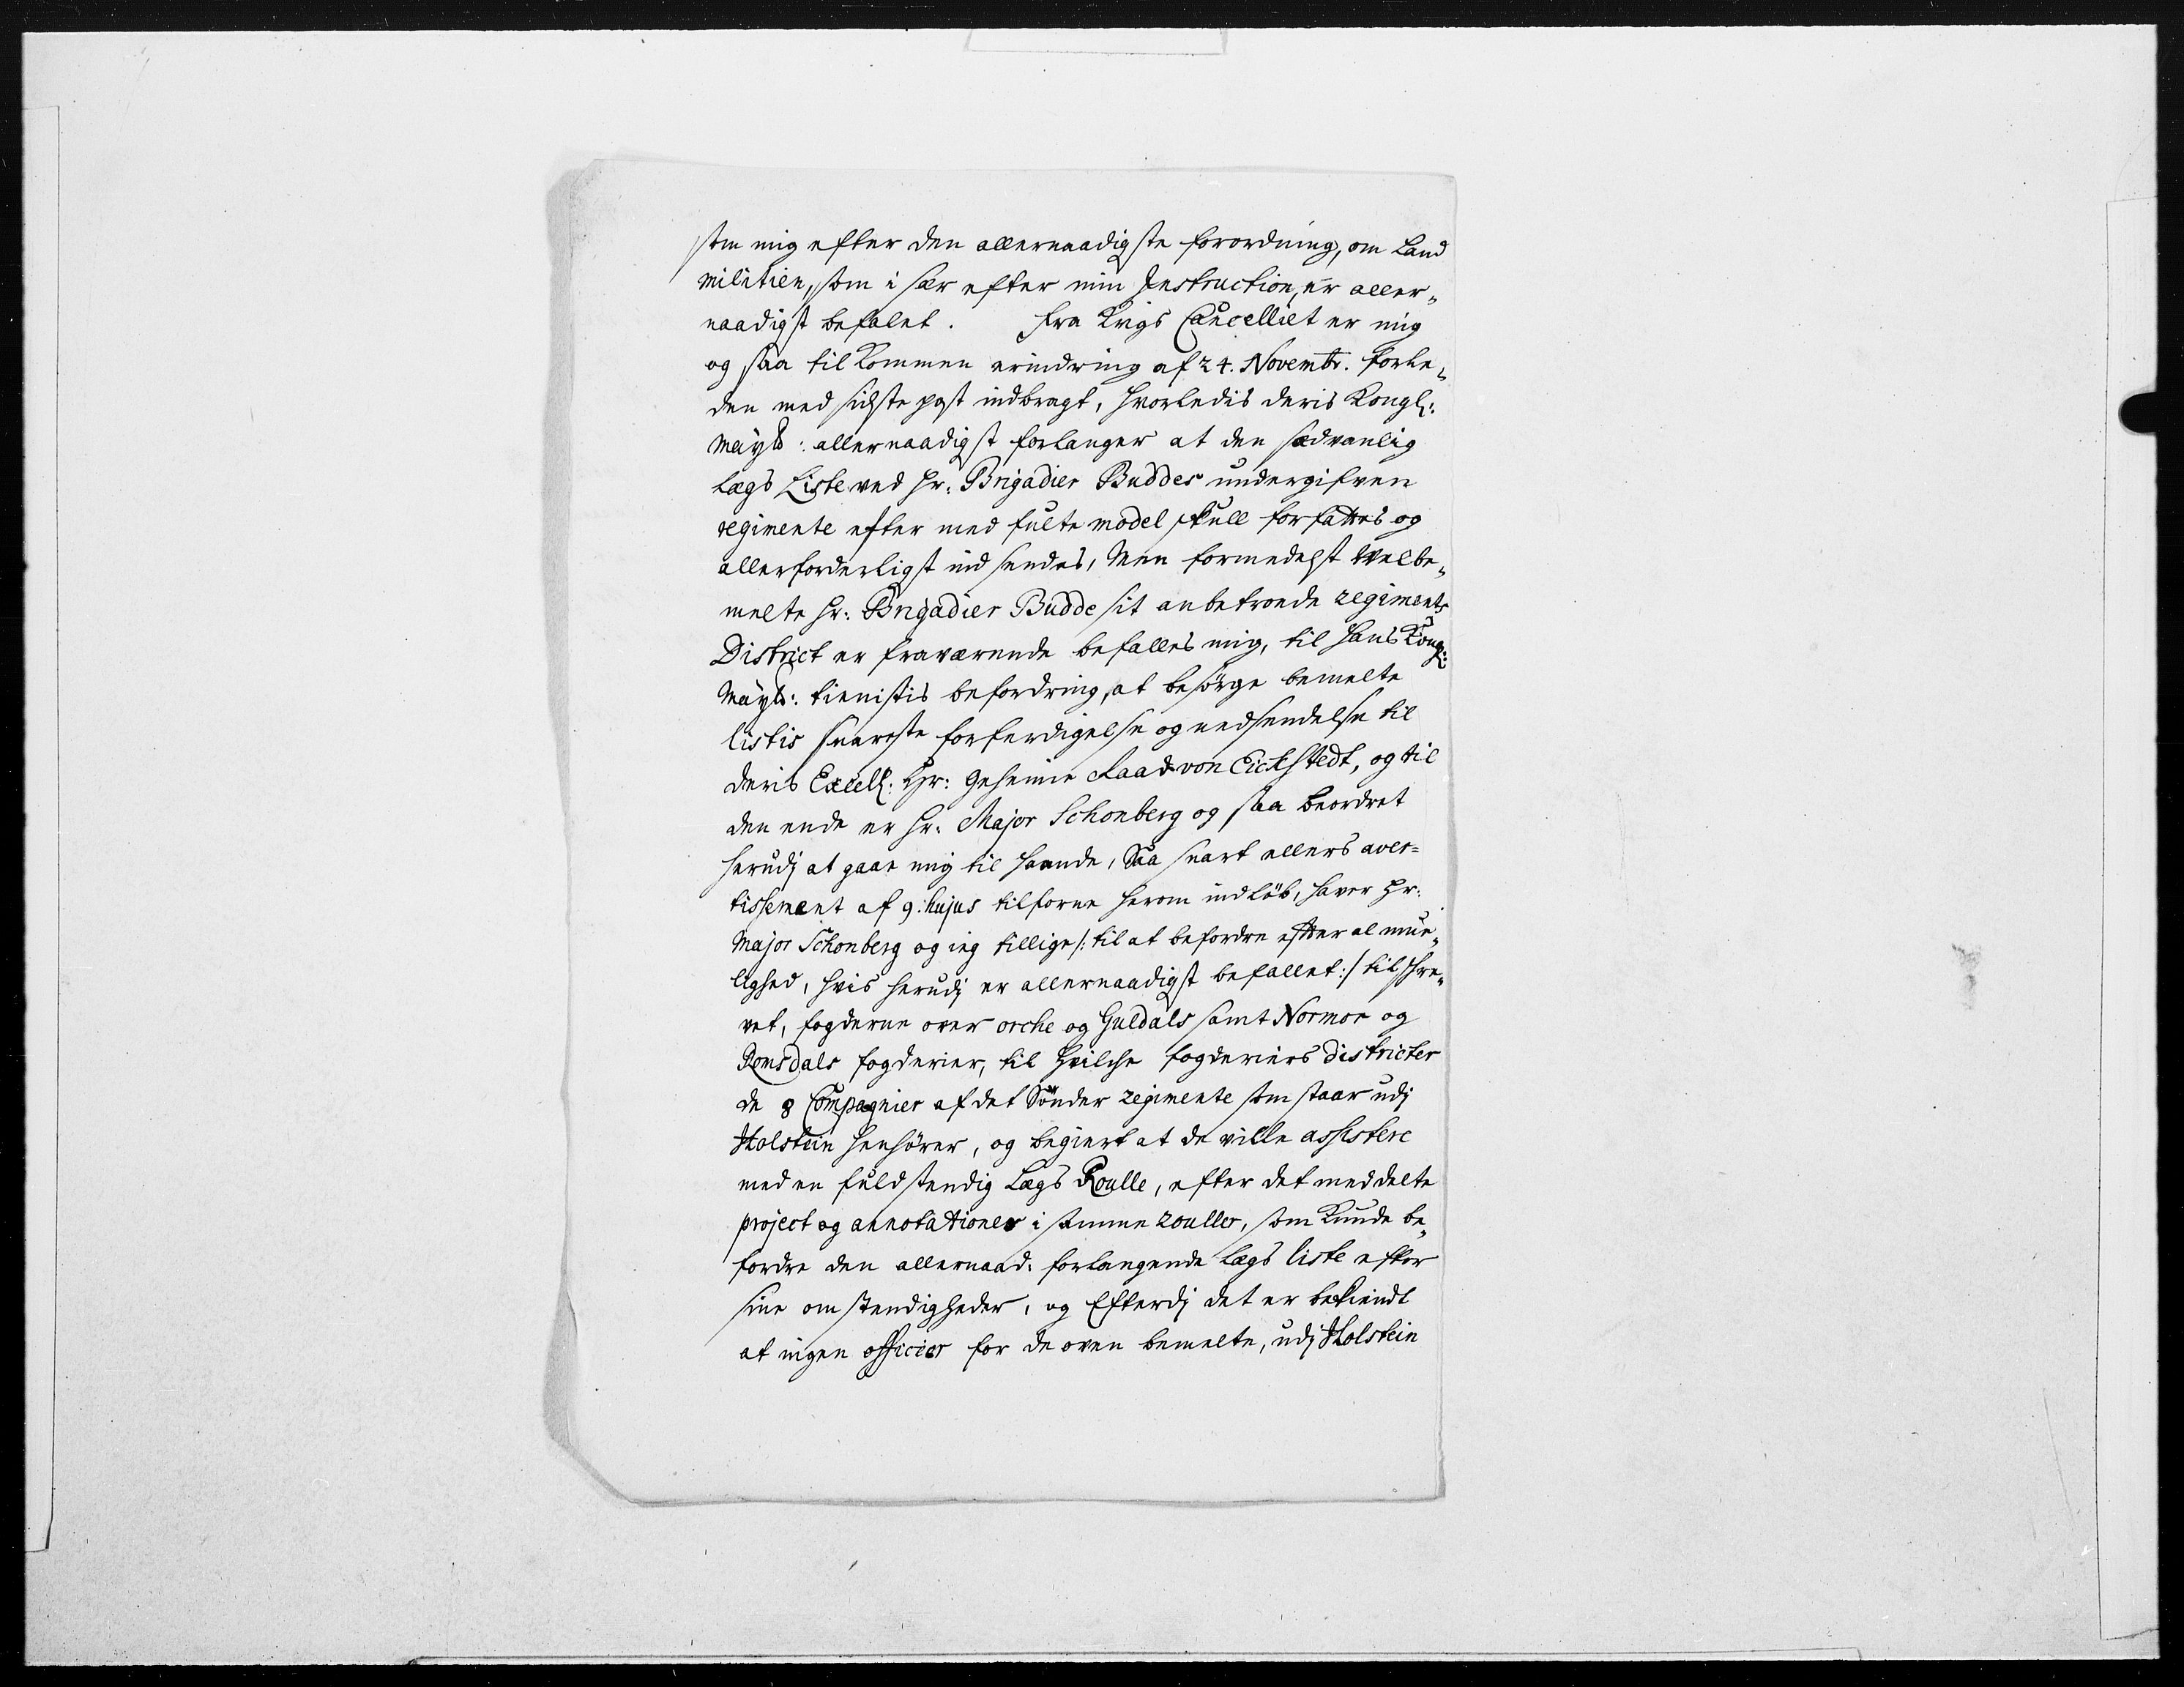 som mig efter den allernaadigste forordning, om Land
militien, som i sær efter min Instruction, er aller„
naadigst befalet. fra Krigs Cancelliet er mig
og saa til kommen erindring af 24. Novembr. forle„
den med sidste post indbragt, hvorledis deris Kongl:
Mayts: allernaadigst forlanger at den sædvanlig
Lægs Liste ved Hr. Brigadier Buddes undergifven
regimente efter med fulte model skull forfattes og
allerforderligst ind sendes, Men formedelst Welbe„
melte Hr: Brigadier Budde sit anbetroede regiments
District er fraværende befalles mig, til Hans Kongl:
Mayts: tienistis befordring, at besørge bemelte
listis snareste forferdigelse og nedsendelse til
deris Excell: Hr: Geheime Raad von Eickstedt, og til
den ende er Hr. Major Schonberg og saa beordret
herudj at gaae mig til haande, Saa snart allers aver=
tissement af 9. hujus tilforne herom indløb, haver Hr.
Major Schonberg og ieg tillige /: til at befordre efter al mue„
lighed, hvis herudj er allernaadigst befallet :/ tilschre„
vet, fogderne over orche og Guldals samt Normør og
Romsdals fogderier, til hvilche fogderiers districter
de 8 Compagnier af det Sønder regimente som staar udj
Holstein henhører, og begiert at de ville assistere
med en fuldstendig Lægs Roulle, efter det meddelte
project og annotationer i samme roulles, som kunde be„
fordre den allernaad: forlangende Lægs liste efter
sine omstendigheder, og Efterdj det er bekiendt
at ingen officier for de oven bemelte, udj Holstein